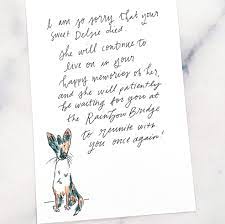 I am so sorry that your
sweet Delsie died.
She will continue to
live on in your
happy memories of her,
and she will patiently
be waiting for you at
the Rainbow Bridge
to reunite with
you once again!